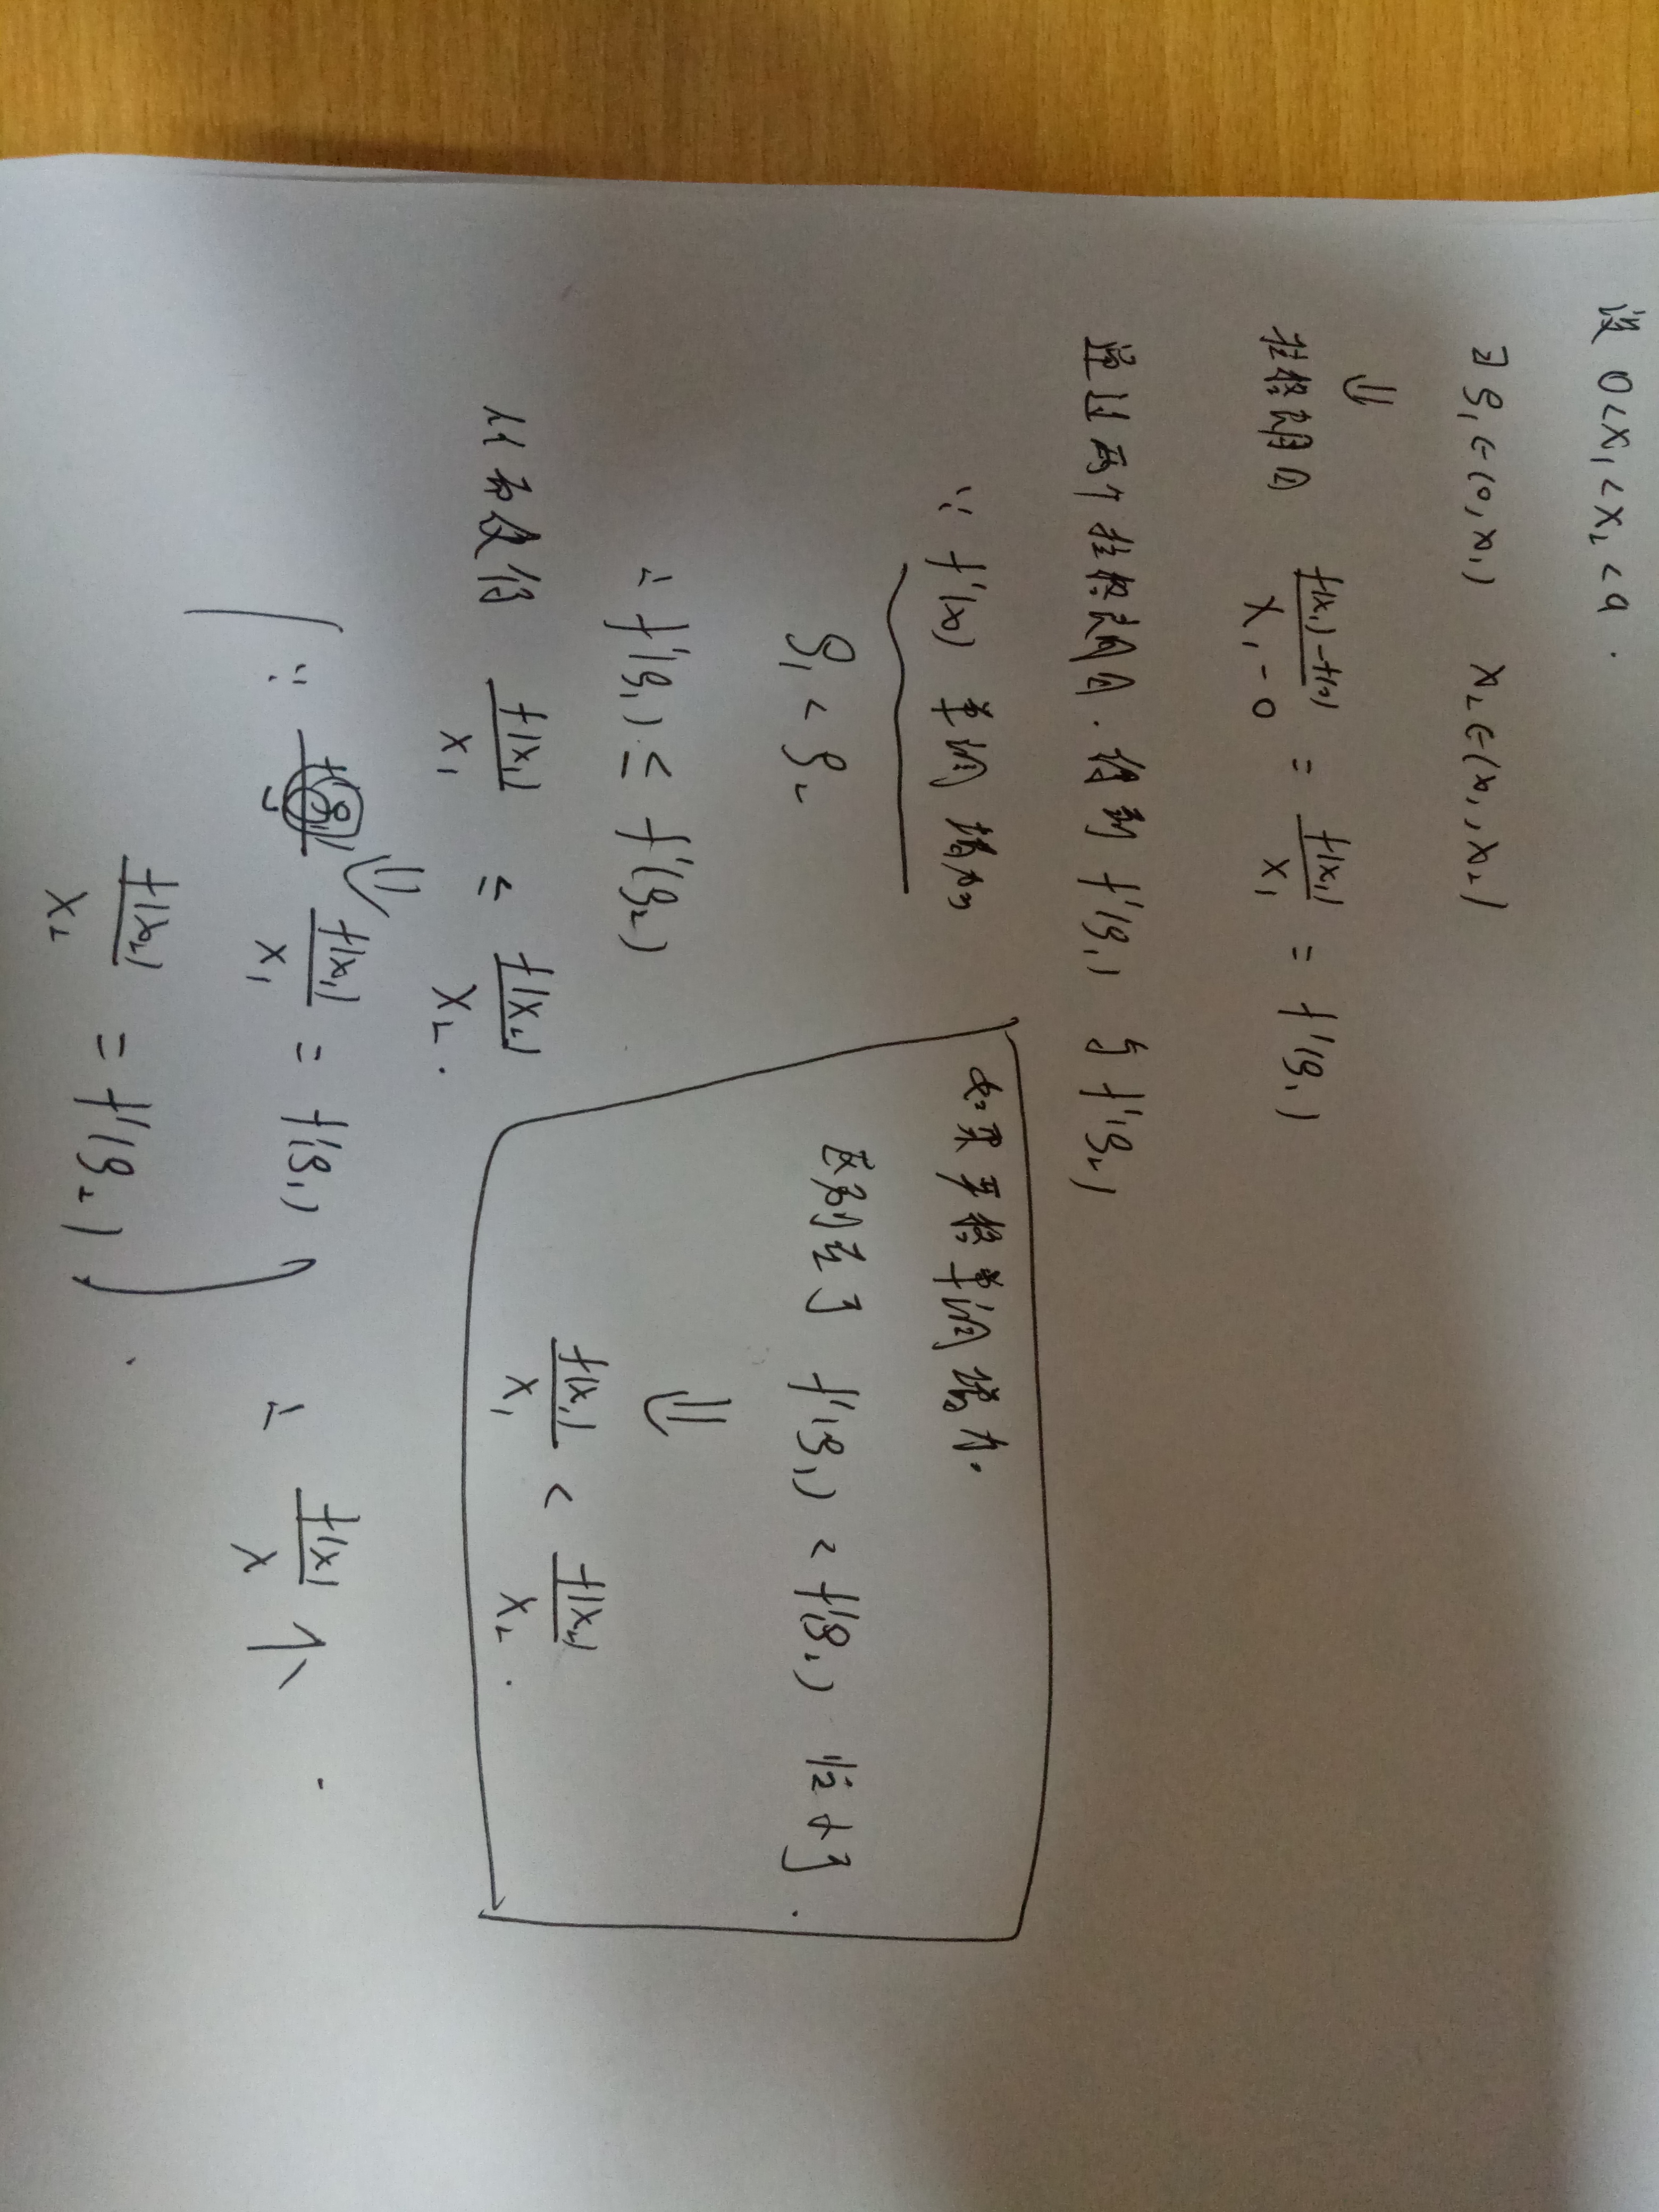 设 0<x₁<x₂<a.
∃ξ₁∈(0,x₁) x₂∈(x₁,x₂)
⇓
拉格朗日 (f(x₁)-f(0))/(x₁-0) = f(x₁)/x₁ = f'(ξ₁)
通过两个拉格朗日.得到 f'(ξ₁) 与 f'(ξ₂)
∵ f'(x) 单调增加
ξ₁<ξ₂
∴ f'(ξ₁) ≤ f'(ξ₂)
从而使得 f(x₁)/x₁ ≤ f(x₂)/x₂.
(∵ ⇒ f(x₁)/x₁ = f'(ξ₁)
f(x₂)/x₂ = f'(ξ₂)).
∴ f(x)/x ↑.
如果严格单调增加.
区别在于 f'(ξ₁) < f'(ξ₂) 而已.
⇓
f(x₁)/x₁ < f(x₂)/x₂.